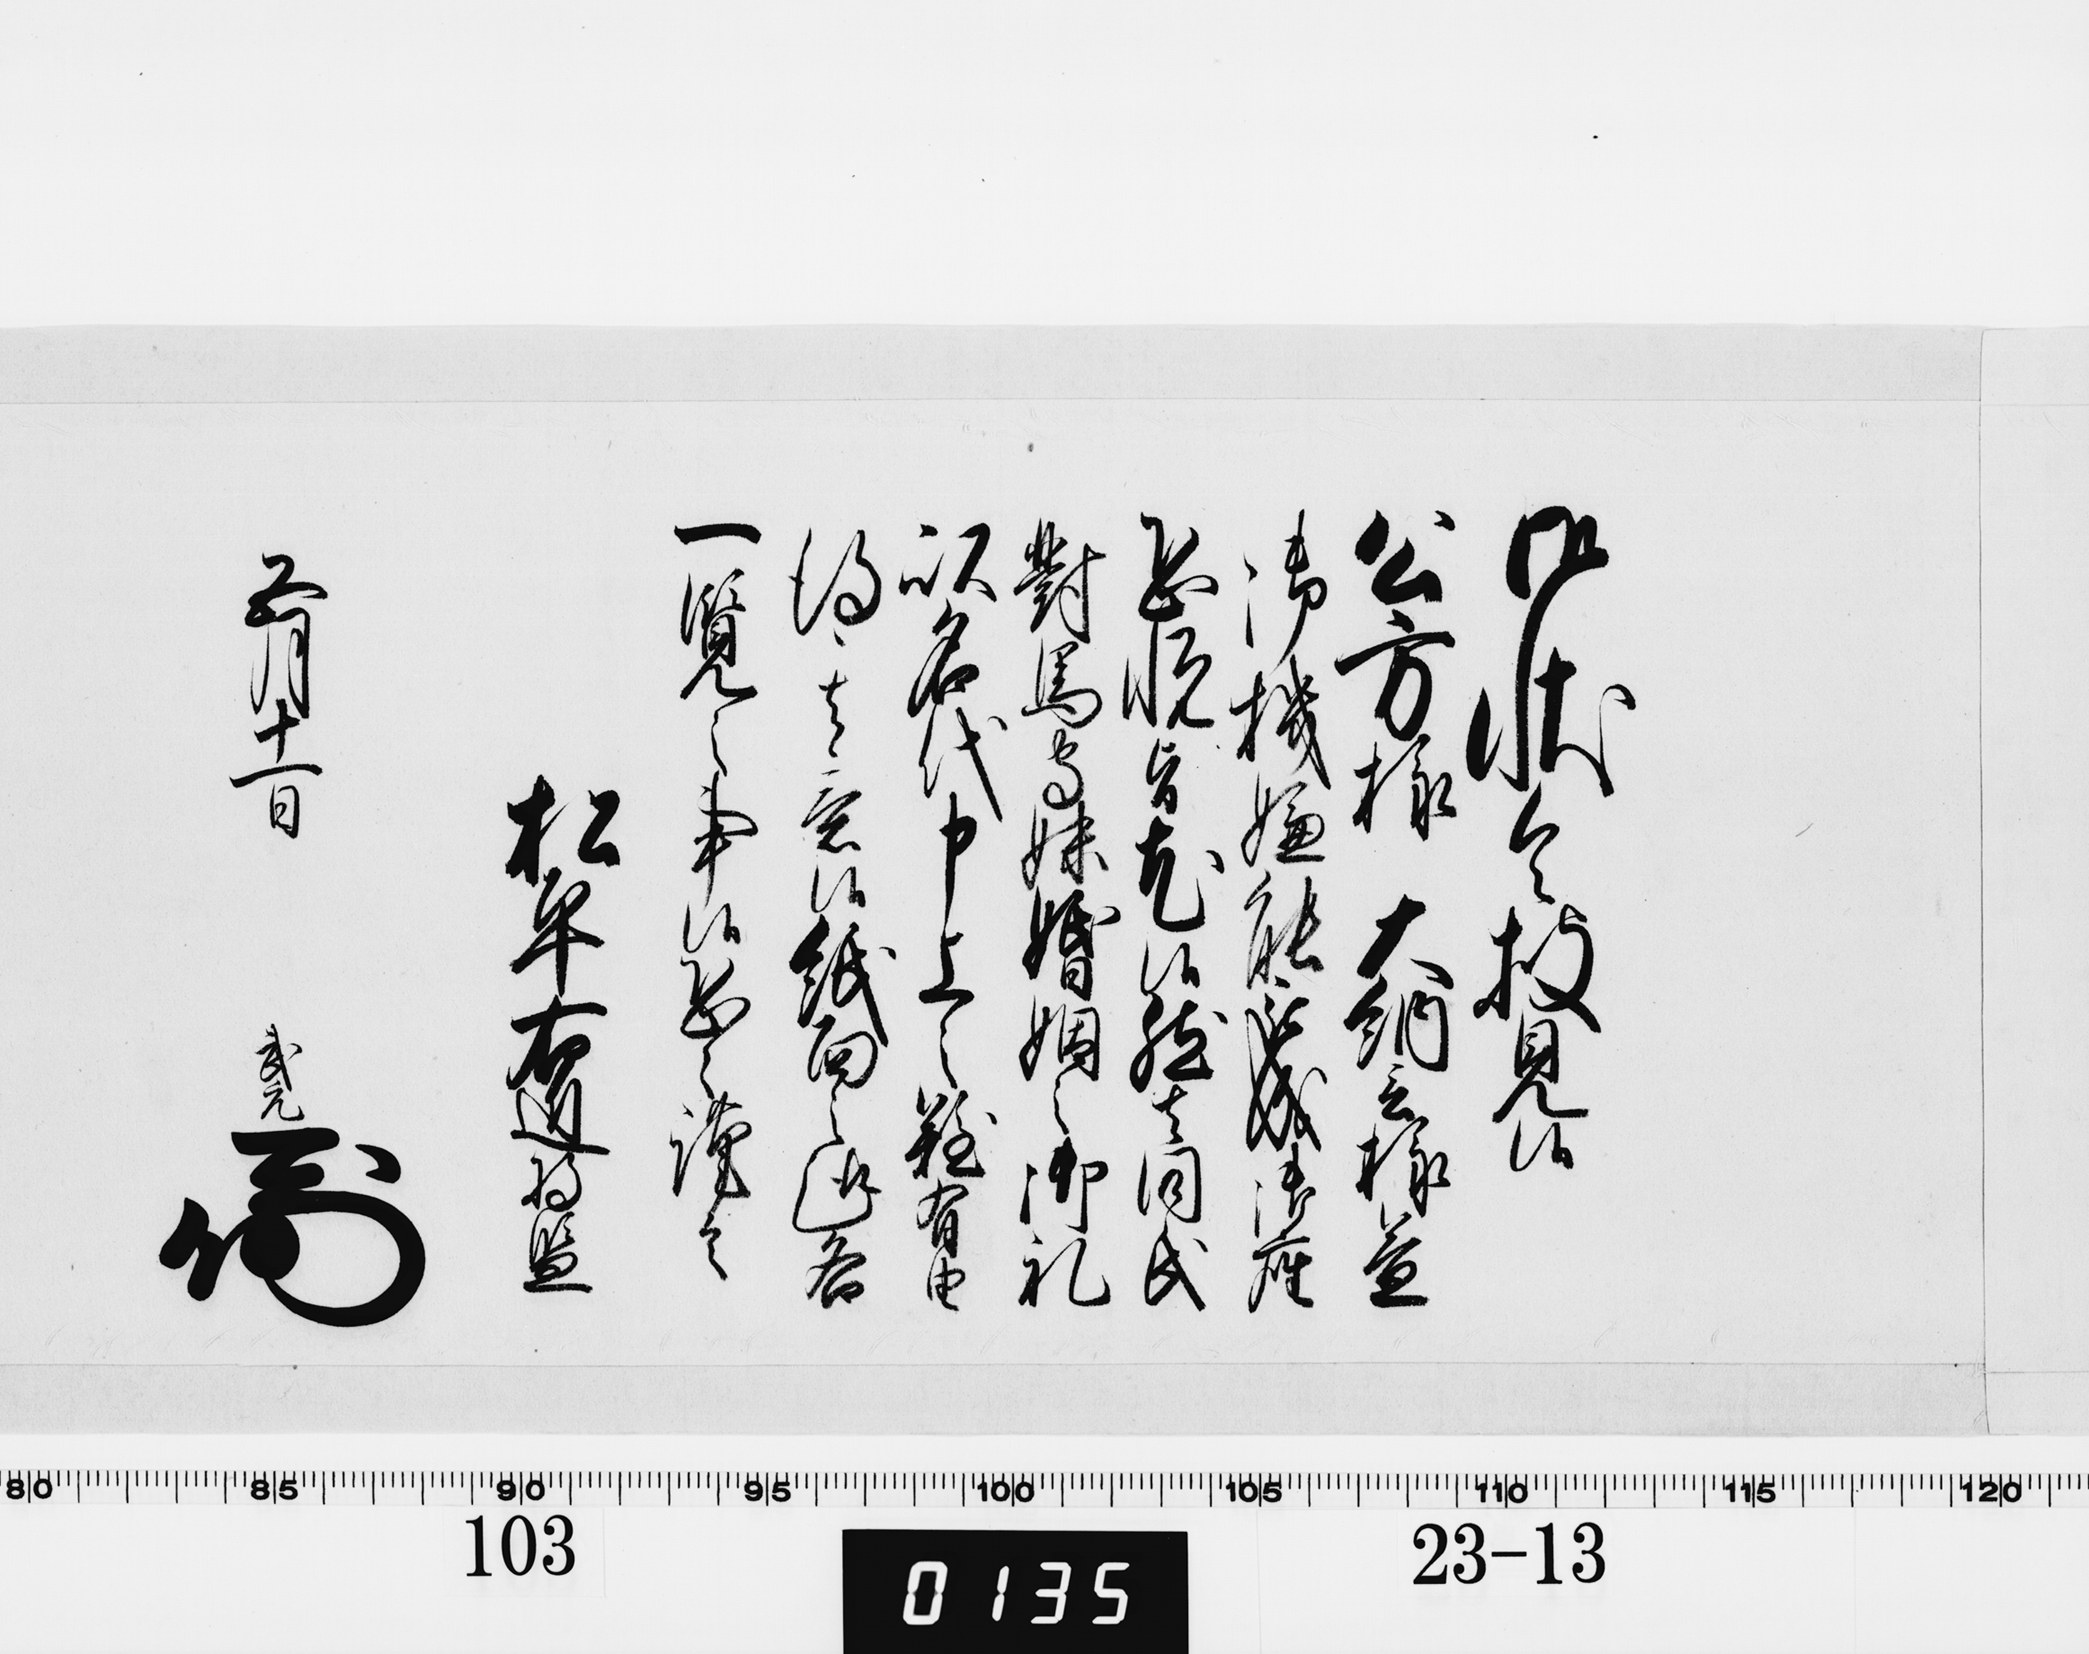 御状令披見候
公方様 大納言様益
御機嫌能被成御座
恐悦旨尤候然者同氏
對馬守妹婚姻之御礼
以名代申上之難有由
得其意候紙面之趣各
一覧之事候恐々謹言
松平右近将監
五月十一日 武元
80 85 90 95 100 105 110 115 120
103 0135 23-13